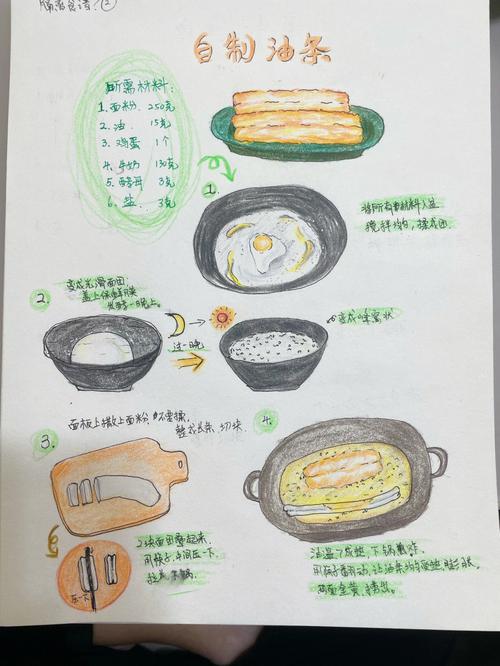 脑洞食谱 ②
自制油条
所需材料:
1. 面粉. 250克
2. 油 15克
3. 鸡蛋 1个
4. 牛奶 130克
5. 酵母 3克
6. 盐. 3克
1.
将所有材料入盆
搅拌均匀, 揉成团.
2.
变成光滑面团.
盖上保鲜膜
发酵一晚上.
过一晚
变成蜂窝状
3.
面板上撒上面粉, 不需揉,
整成长条 切块.
压一下
2块面团叠起来.
用筷子, 中间压一下.
拉长下锅.
4.
油温7成热, 下锅煎炸.
用筷子翻动, 让油条均匀受热膨胀.
两面金黄, 捞出.